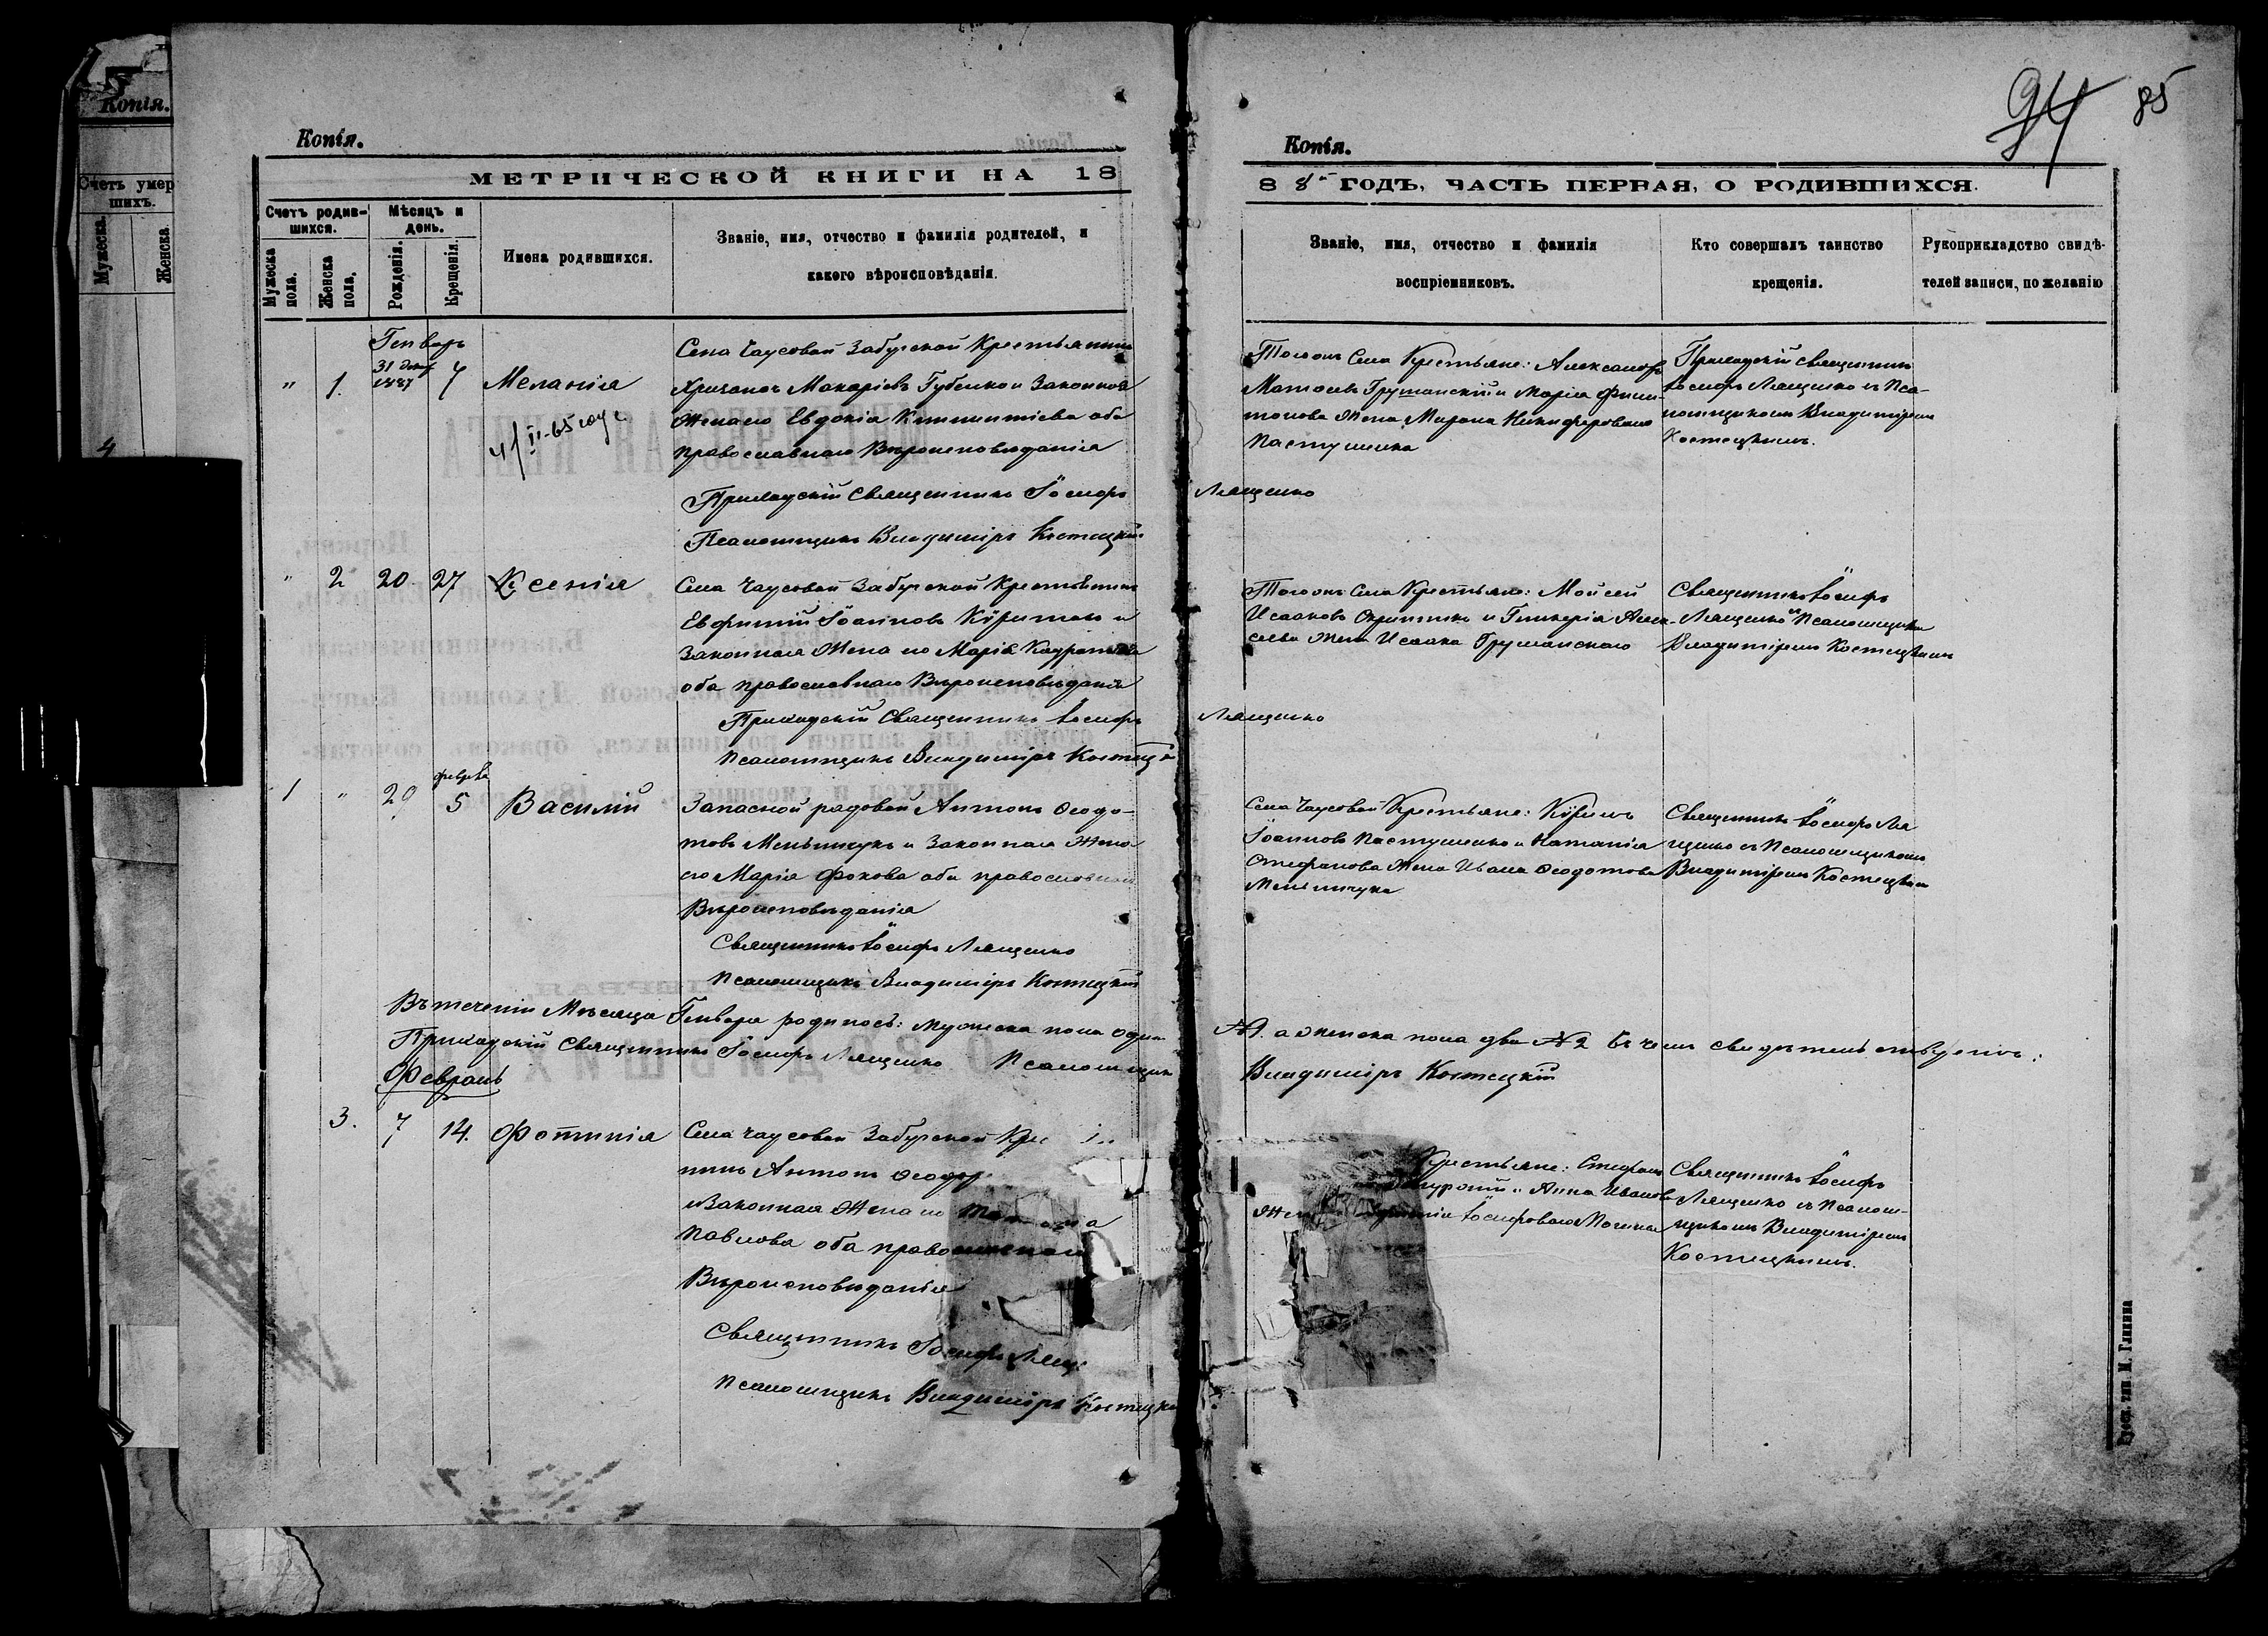 Копія.
Счетъ умер
шихъ.
Мужеска.
Женска
4
Копія.
МЕТРИЧЕСКОЙ КНИГИ НА 18
Счетъ родив-
шихся.
Мѣсяцъ и
день.
Мужеска
пола.
Женска
пола.
Рожденія.
Крещенія.
Имена родившихся.
Званіе, имя, отчество и фамилія родителей, и
какого вѣроисповѣданія.
Генварь
" 1. 31 1887 7 Меланія
Села Чаусовой Забугской Крестьянинъ
Макаріевъ Губенко и Законная
Жена его Евдокія оба
православнаго Вѣроисповѣданія
Приходскій Священникъ Іосифъ Лященко
Псаломщикъ Владиміръ Костецкій
" 2 20 27 Ксенія
Села Чаусовой Забугской Крестьянинъ
Евфимій Іоанновъ и
Законная Жена его Марія
оба православнаго Вѣроисповѣданія
Приходскій Священникъ Іосифъ Лященко
Псаломщикъ Владиміръ
февраля
1 " 29 5 Василій
Запасной рядовой Антонъ Ѳеодо-
товъ Мельничукъ и Законная Жена
его Марія Фокова оба православнаго
Вѣроисповѣданія
Священникъ Іосифъ Лященко
Псаломщикъ Владиміръ Костецкій
Въ теченіи Мѣсяца Генваря родилось: мужеска пола одинъ
№1. а женска пола два №2 въ чемъ свидѣтельствуемъ:
Приходскій Священникъ Іосифъ Лященко Псаломщикъ
Владиміръ Костецкій
Февраль
3. 7 14. Фотинія
Села Чаусовой Забугской
Антонъ
и Законная Жена его
Павлова оба православнаго
Вѣроисповѣданія
Священникъ Іосифъ
Псаломщикъ Владиміръ
94 85
Копія.
88 ГОДЪ, ЧАСТЬ ПЕРВАЯ, О РОДИВШИХСЯ.
Званіе, имя, отчество и фамилія
воспріемниковъ.
Кто совершалъ таинство
крещенія.
Рукоприкладство свидѣ-
телей записи, по желанію
Тогожъ Села Крестьяне: Александръ
Матѳеевъ Грушанскій и Марія
Жена Мирона Никифороваго
Пастушенка
Приходскій священникъ
Іосифъ Лященко съ Пса-
ломщикомъ Владиміромъ
Костецкимъ.
Тогожъ Села Крестьяне: Мойсей
Исааковъ и Гликерія
Жена Исаака Грушанскаго
Священникъ Іосифъ
Лященко Псаломщикомъ
Владиміромъ Костецкимъ
Села Чаусовой Крестьяне:
Іоанновъ Пастушенко и Наталія
Стефанова Жена Ивана Ѳеодотова
Мельничука
Священникъ Іосифъ Ля
щенко съ Псаломщикомъ
Владиміромъ Костецкимъ
Крестьяне: Стефанъ
Анна Иванова
Жена Іосифоваго
Священникъ Іосифъ
Лященко съ Псалом-
щикомъ Владиміромъ
Костецкимъ.